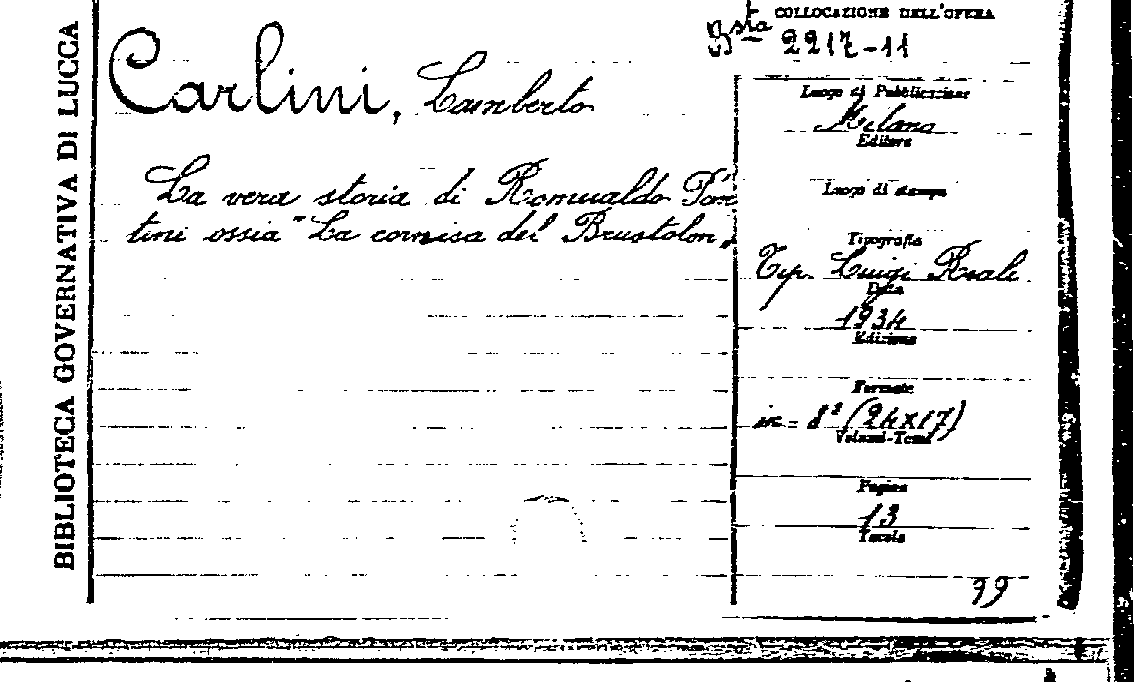 BIBLIOTECA GOVERNATIVA DI LUCCA
Carlini, Lamberto
La vera storia di Romualdo Pan
tini ossia "La cornisa del Brustolon"
COLLOCAZIONE DELL'OPERA
Bsta 2217-11
Luogo di Pubblicazione
Milano
Editore
Luogo di stampa
Tipografia
Tip. Luigi Reali
Data
1934
Edizione
Formato
in-8° (24x17)
Volumi-Tomi
Pagine
13
Tavole
99